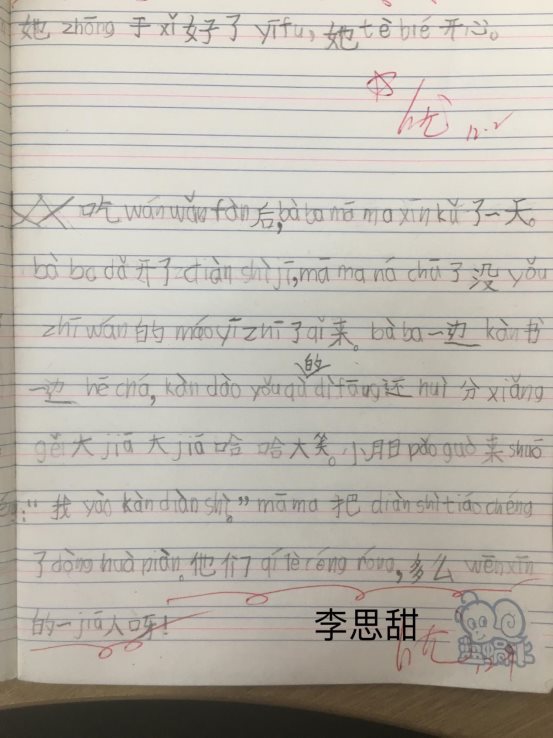 她 zhōng 于 xǐ 好了 yīfu, 她 tè bié 开心。
优 12.2
吃 wán wǎn fàn 后, bà ba mā ma xīn kǔ 了一天。
bà ba dǎ 开了 diàn shì jī, mā ma ná chū 了没 yǒu
zhī wán 的 máo yī zhī 了 qǐ 来。bà ba 一边 kàn 书
一边 hē chá, kàn dào yǒu qù 的 dì fāng 还 huì 分 xiǎng
gěi 大 jiā 大 jiā 哈哈大笑。小月日 pǎo guò 来 shuō
:“我 yào kàn diàn shì。” mā ma 把 diàn shì tiáo chéng
了 dòng huà piàn。他们 qí lè róng róng, 多么 wēn xīn
的一 jiā 人呀!
李思甜
优